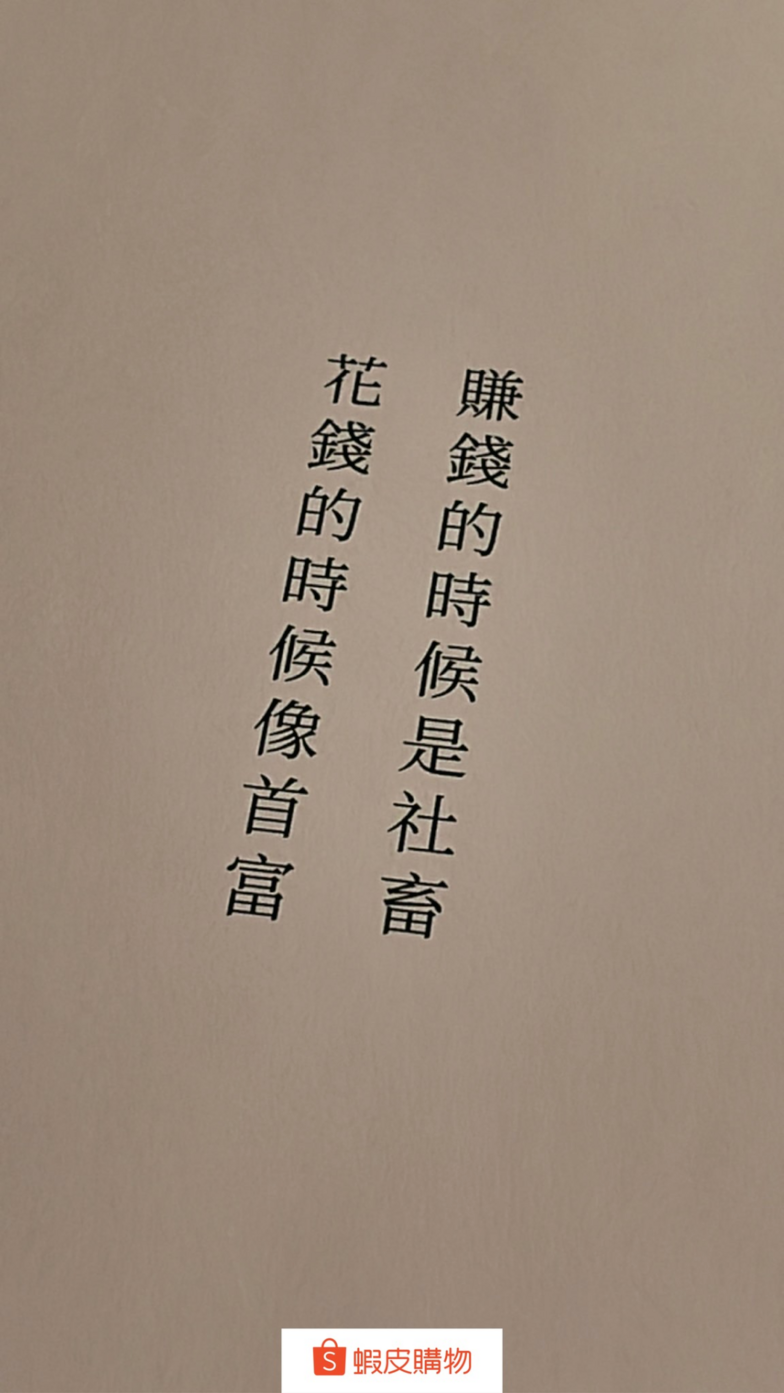 賺錢的時候是社畜
花錢的時候像首富
蝦皮購物